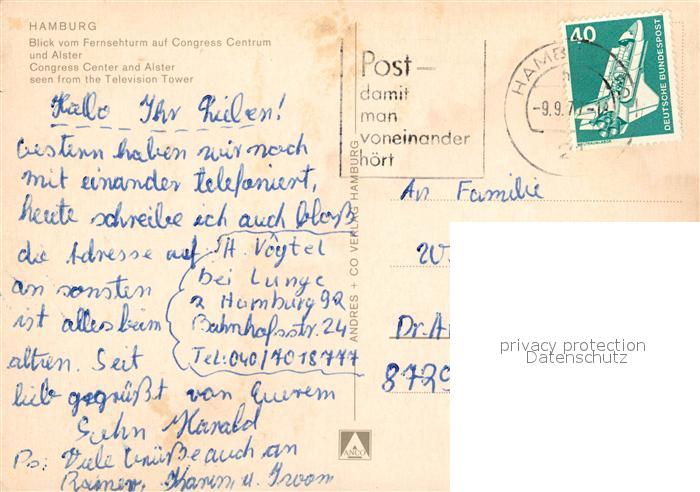 HAMBURG
Blick vom Fernsehturm auf Congress Centrum
und Alster
Congress Center and Alster
seen from the Television Tower
Hallo Ihr Lieben!
Gestern haben wir noch
mit einander telefoniert,
heute schreibe ich auch bloß
die Adresse auf
an sonsten
ist alles beim
alten. Seit
lieb gegrüßt von Eurem
Sohn Harald
Ps: Viele Grüße auch an
Rainer, Karin u.
H. Vogtel
bei Lunge
2 Hamburg 92
Bahnhofsstr. 24
Tel: 040/7018777
ANDRES + CO VERLAG HAMBURG
ANCO
Post
damit
man
voneinander
hört
HAMB
-9.9.7
40
DEUTSCHE BUNDESPOST
An Familie
W
Dr. A
8729
privacy protection
Datenschutz